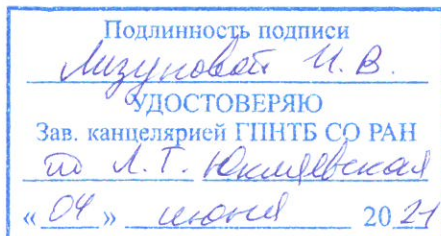 Подлинность подписи
Лизуновой И. В.
УДОСТОВЕРЯЮ
Зав. канцелярией ГПНТБ СО РАН
Л. Т.
«04» июня 2021